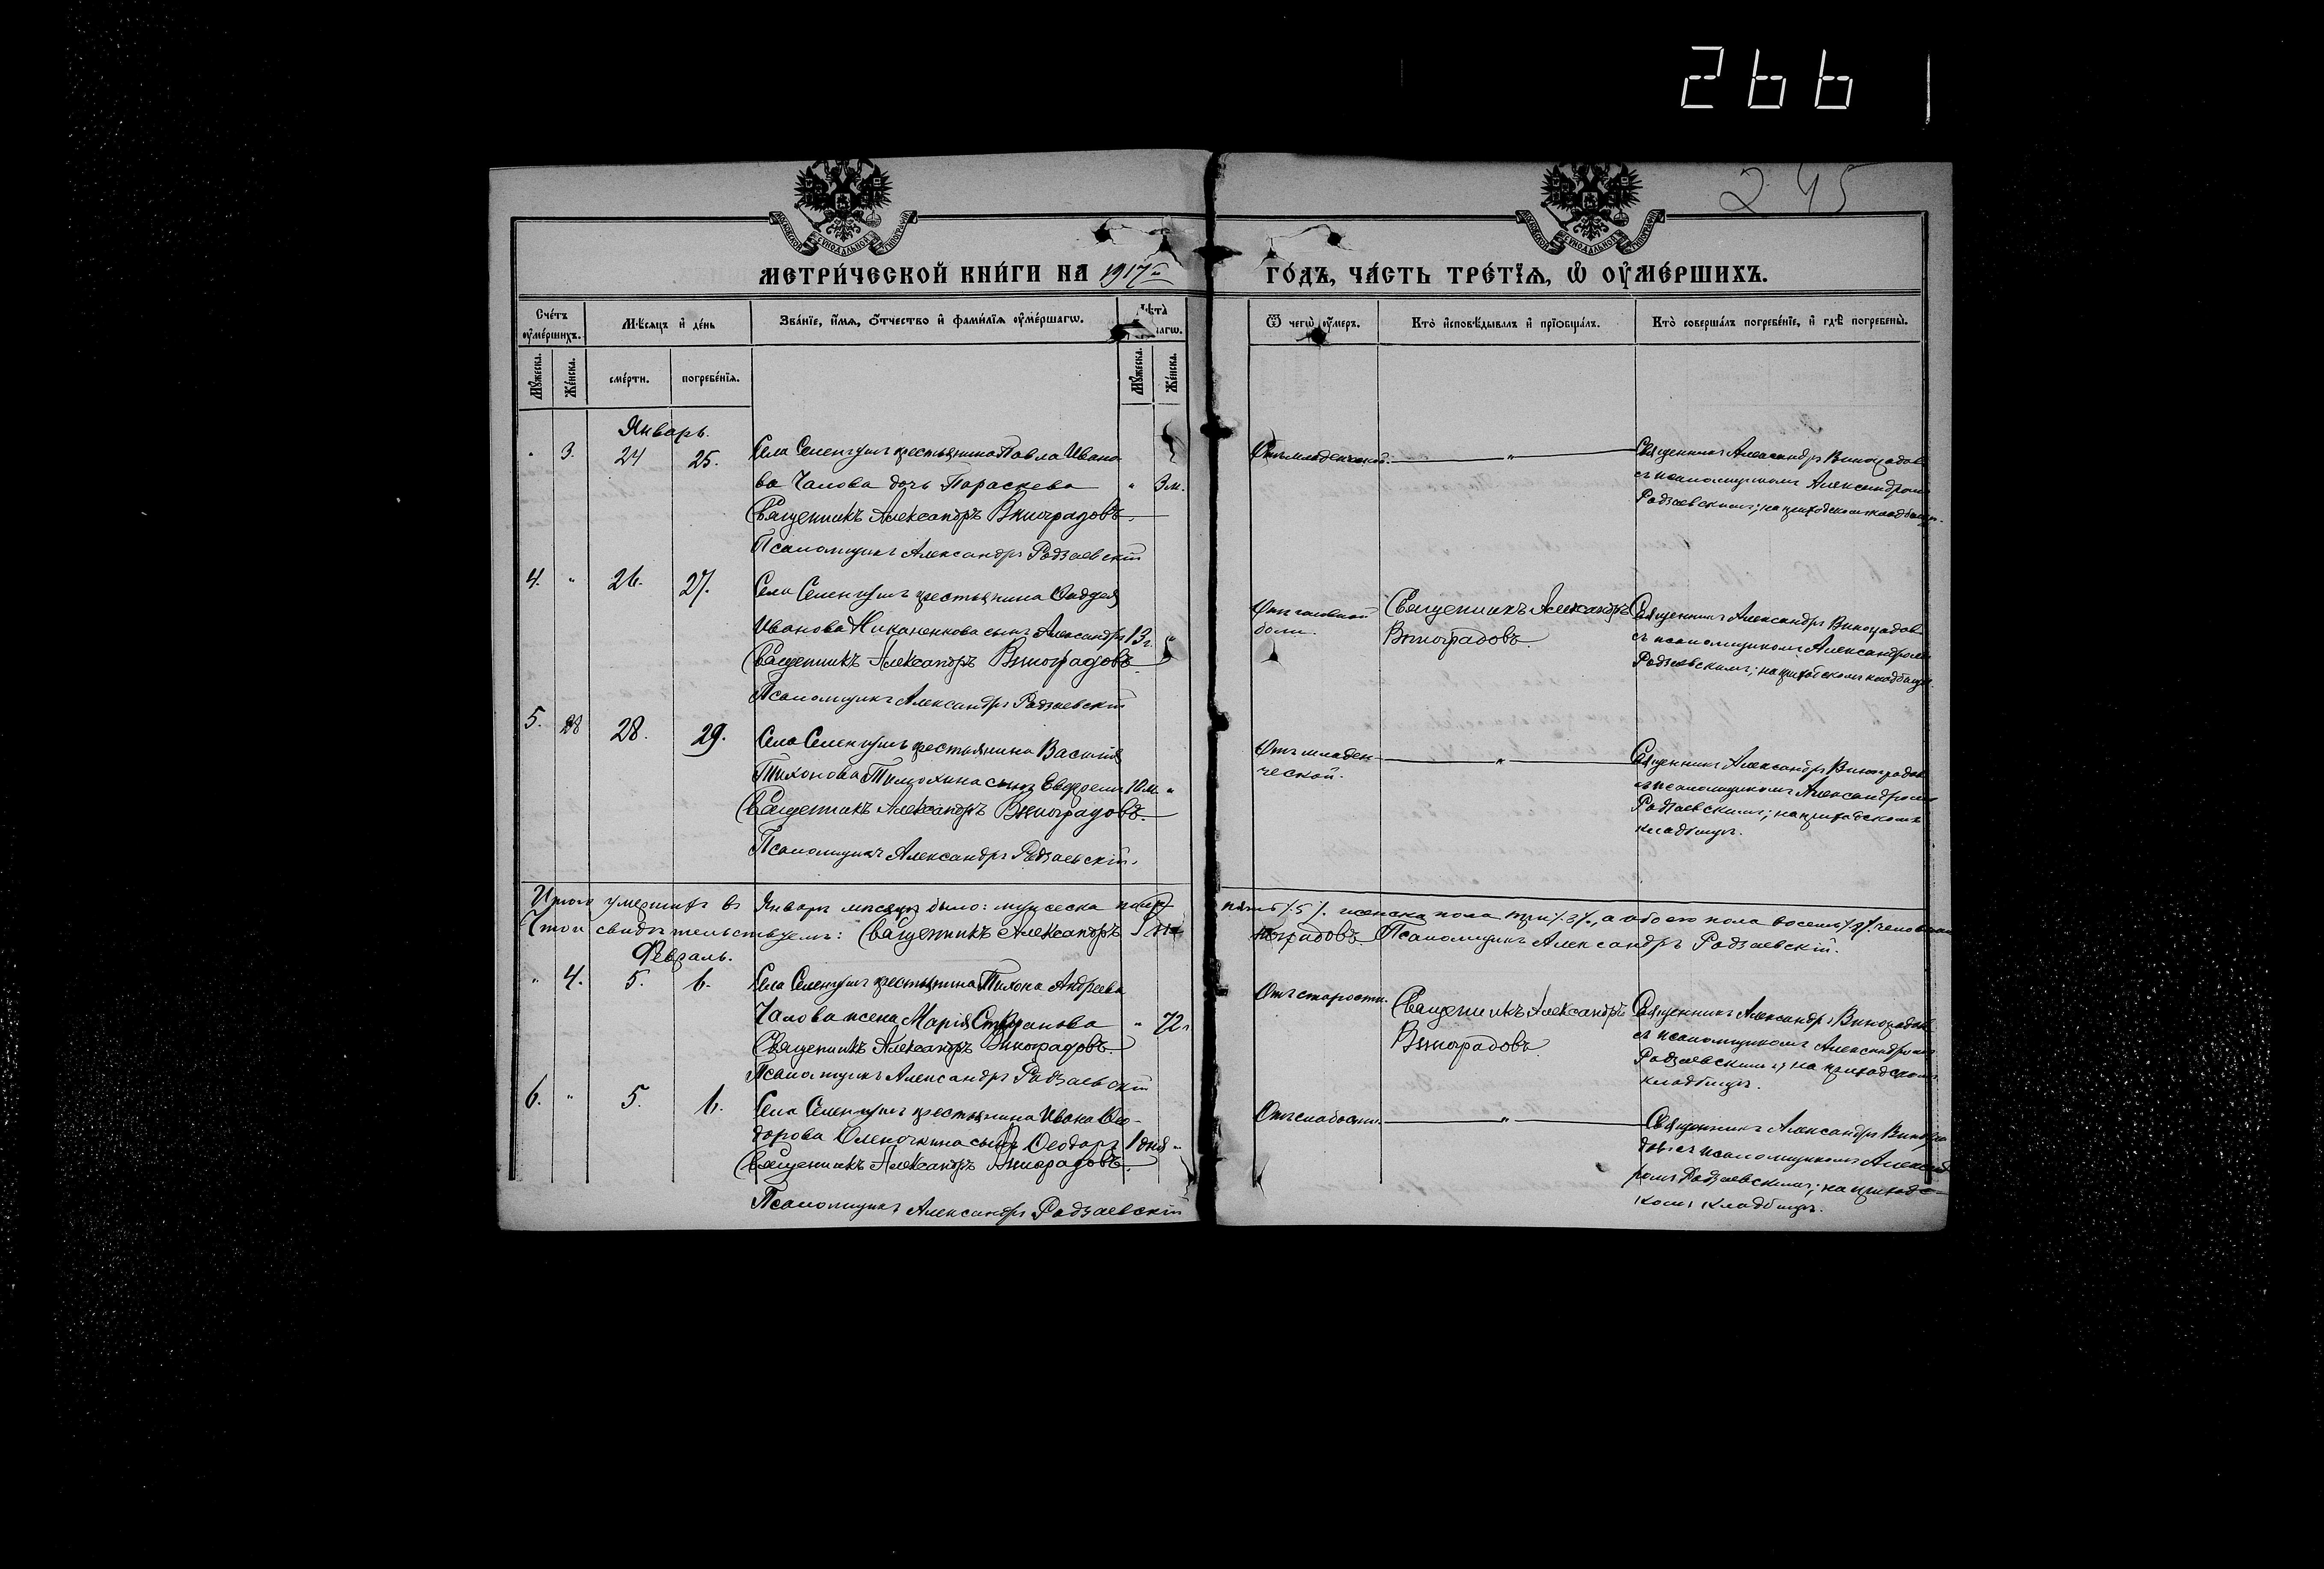 266
245
МЕТРИ́ЧЕСКОЙ КНИ́ГИ НА 1917 г
ГО́ДЪ, ЧА́СТЬ ТРЕ́ТІЯ, Ѡ҆ ОУ҆МЕ́РШИХЪ.
Сче́тъ оу҆ме́ршихъ.
Мѣ́сяцъ и҆ де́нь
Зва́нїе, и҆́мя, ѻ҆́тчество и҆ фами́лїя оу҆ме́ршагѡ.
Лѣ́та
Ѿ чегѡ̀ оу҆́меръ.
Кто̀ и҆сповѣ́дывалъ и҆ прїѡбща́лъ.
Кто̀ соверша́лъ погребе́нїе, и҆ гдѣ̀ погребены̀.
Мꙋ́жеска.
Же́нска.
сме́рти.
погребе́нїя.
Мꙋ́жеска.
Же́нска.
Январь.
" 3. 24 25. Села Селенгушъ крестьянина Павла Ивано
ва Чалова дочь Параскева " 3 м.
Священникъ Александръ Виноградовъ.
Псаломщикъ Александръ Радзаевскій
Отъ младенческой. "
Священникъ Александръ Виноградовъ
съ псаломщикомъ Александромъ
Радзаевскимъ; на приходскомъ кладбищѣ.
4. " 26. 27. Села Селенгушъ крестьянина Фаддея
Иванова сынъ Александръ 13 г. "
Священникъ Александръ Виноградовъ.
Псаломщикъ Александръ Радзаевскій
Отъ головной
боли.
Священникъ Александръ
Виноградовъ.
Священникъ Александръ Виноградовъ
съ псаломщикомъ Александромъ
Радзаевскимъ; на приходскомъ кладбищѣ.
5. 28 28. 29. Села Селенгушъ крестьянина Василія
Тихонова Тимохина сынъ Ефремъ 10 м. "
Священникъ Александръ Виноградовъ.
Псаломщикъ Александръ Радзаевскій.
Отъ младен-
ческой. "
Священникъ Александръ Виноградовъ
съ псаломщикомъ Александромъ
Радзаевскимъ; на приходскомъ
кладбищѣ.
Итого умершихъ въ Январѣ мѣсяцѣ было: мужеска пола пять /5/. женска пола три /3/., а обоего пола восемь /8/. человѣкъ
Что и свидѣтельствуемъ: Священникъ Александръ Виноградовъ Псаломщикъ Александръ Радзаевскій.
Февраль.
" 4. 5. 6. Села Селенгушъ крестьянина Тихона Андреева
Чалова жена Марія Степанова " 72 г.
Священникъ Александръ Виноградовъ.
Псаломщикъ Александръ Радзаевскій
Отъ старости.
Священникъ Александръ
Виноградовъ.
Священникъ Александръ Виноградовъ
съ псаломщикомъ Александромъ
Радзаевскимъ; на приходскомъ
кладбищѣ.
6. " 5. 6. Села Селенгушъ крестьянина Ивана Ѳео-
дорова Оленочкина сынъ Ѳеодоръ 1 дня "
Священникъ Александръ Виноградовъ.
Псаломщикъ Александръ Радзаевскій
Отъ слабости. "
Священникъ Александръ Виногра
довъ съ псаломщикомъ Александ
ромъ Радзаевскимъ; на приходс-
комъ кладбищѣ.